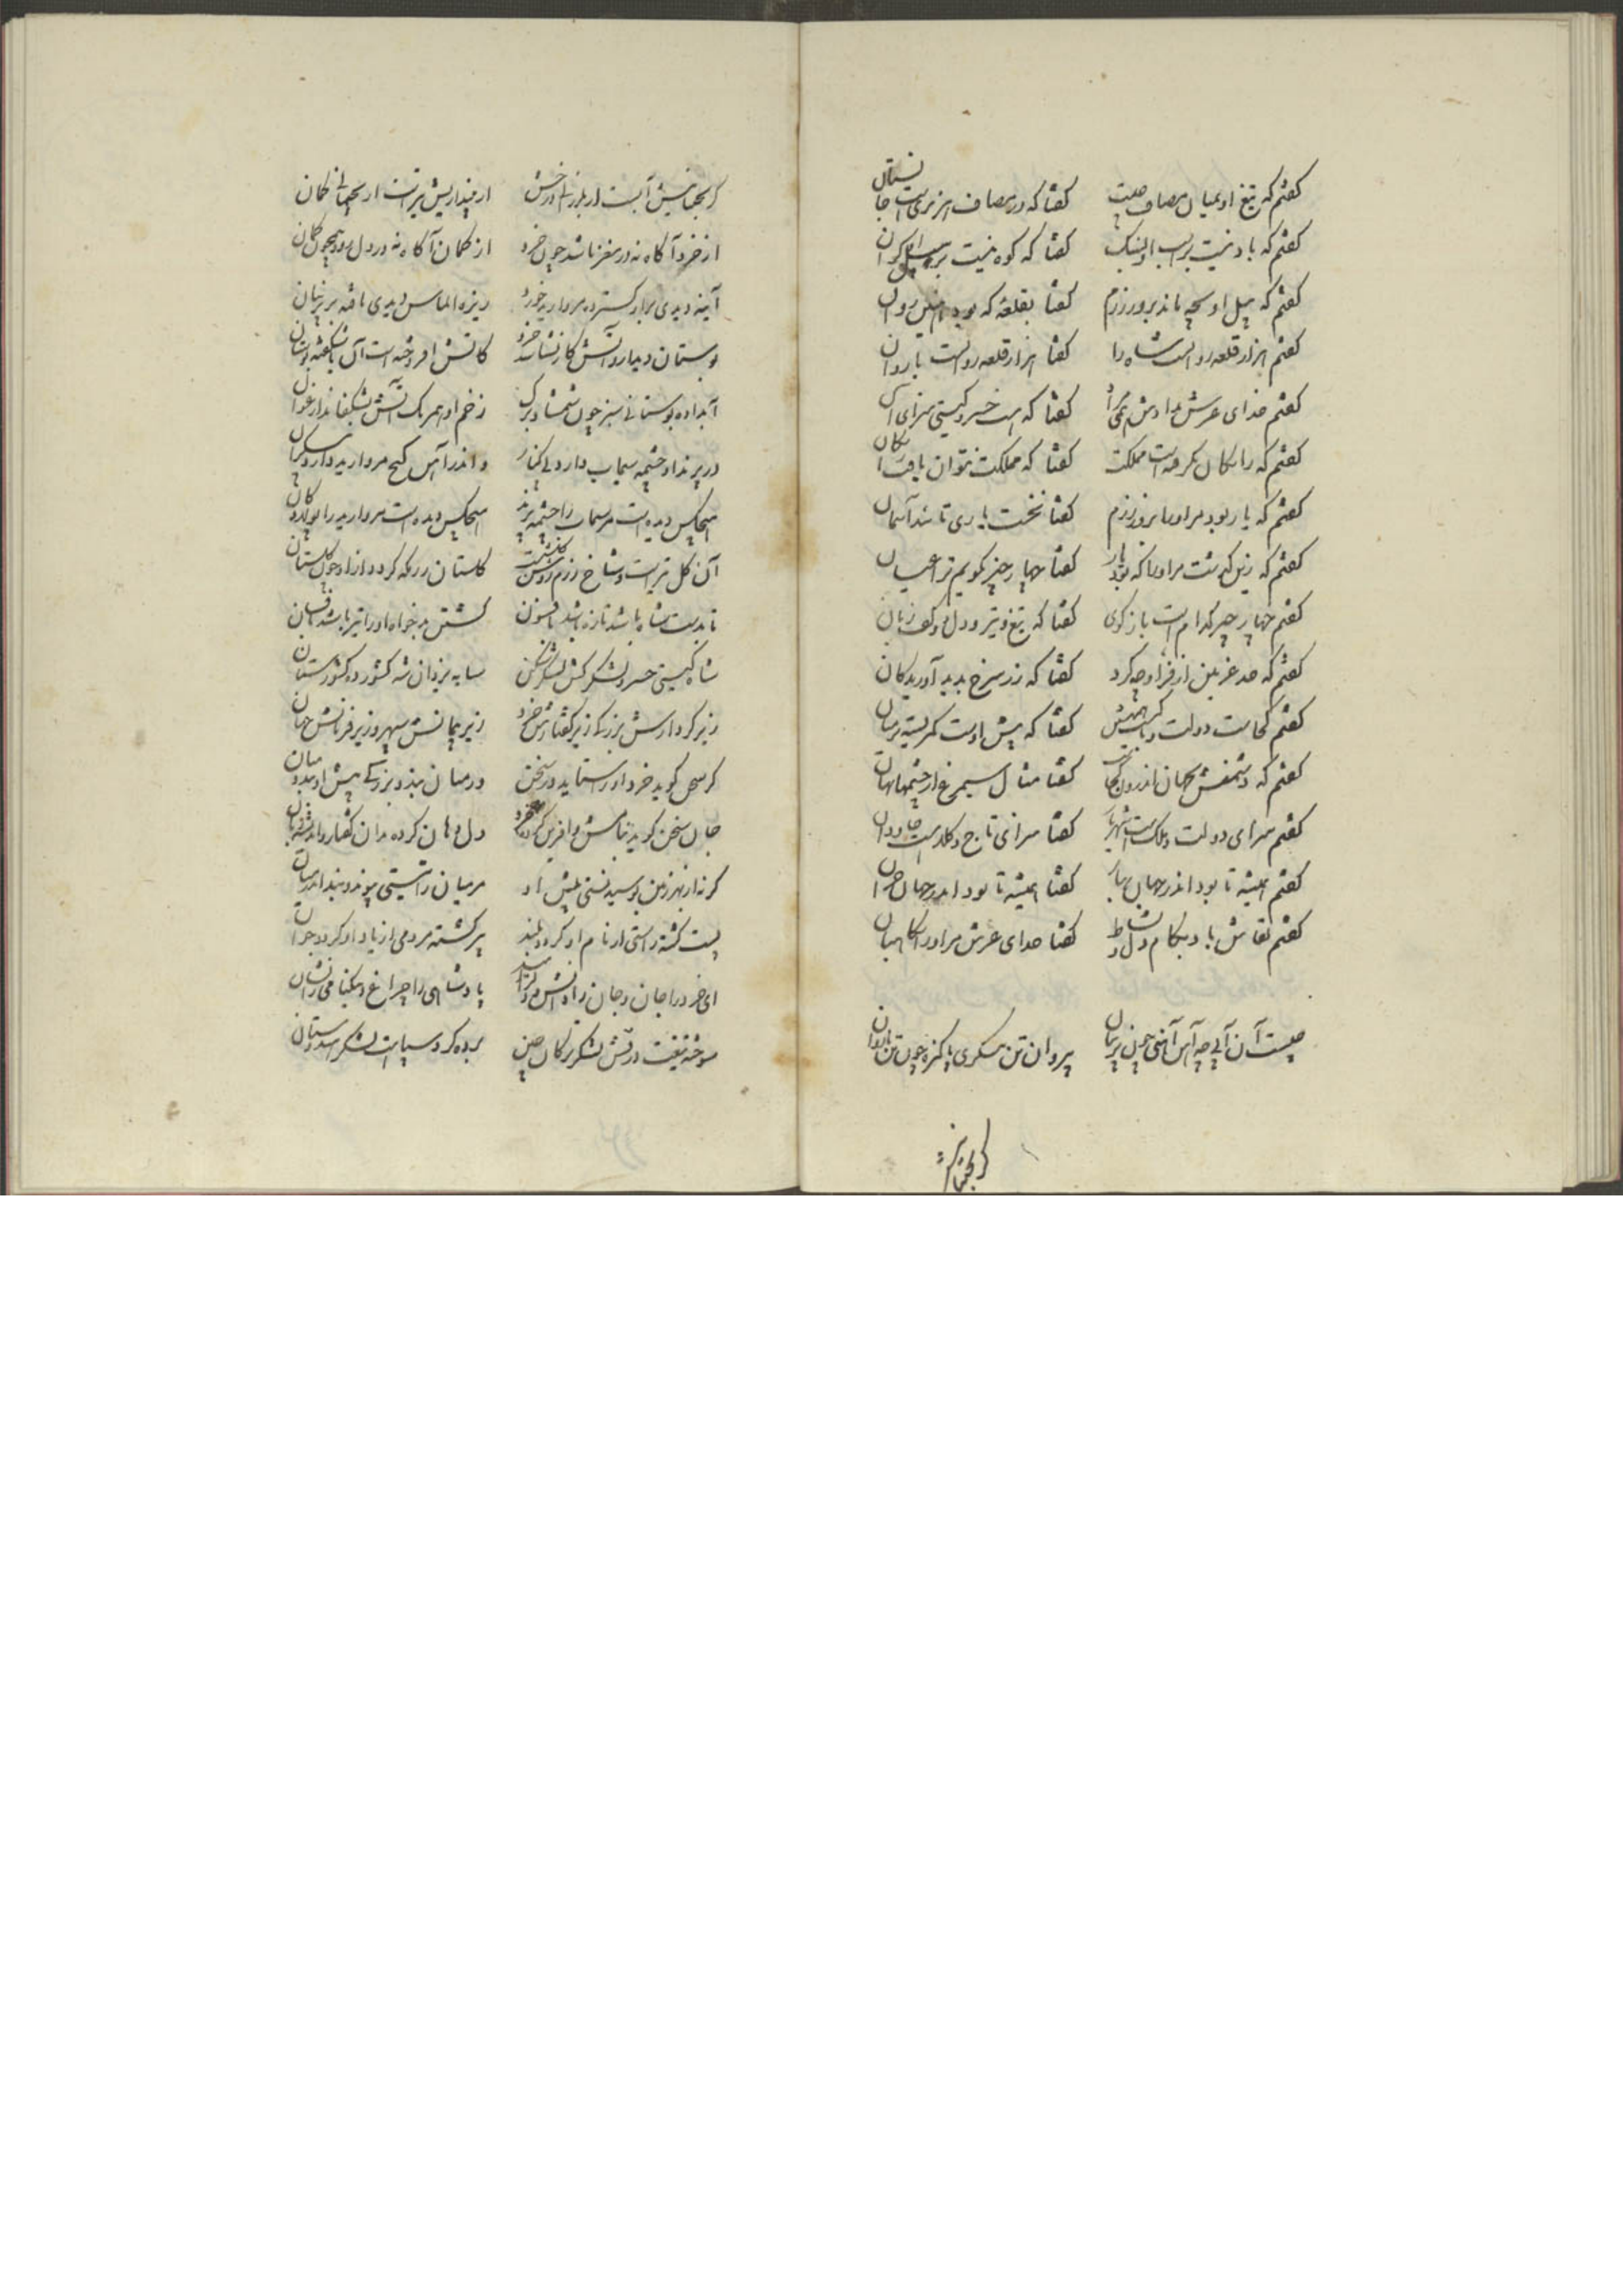 گفتم که تیغ او بمیان مصاف چیست گفتا که در مصاف هزبریست جانستان
گفتم که باد نیست بر اسب او سبک گفتا که کوه نیست بر گران
گفتم که پیل او بچه ماند بروز رزم گفتا بقلعهٔ که بود روان
گفتم هزار قلعه روانست شاه را گفتا هزار قلعه روانست با روان
گفتم خدای عرش گفتا که هست خسرو گیتی سزای آن
گفتم که رایگان بگرفته است مملکت گفتا که مملکت نتوان یافت رایگان
گفتم که یار بود مر او را بروز رزم گفتا نخست یاری تا شد آسمان
گفتم که زین گذشت مر او را که بود یار گفتا چهار چیز گویم ترا عیان
گفتم چهار چیز کدام است باز گوی گفتا که تیغ و تیر و دل و کف زبان
گفتم که حد غزنین از فر او چه کرد گفتا که زر سرخ پدید آورید کان
گفتم کجاست دولت گفتا که پیش اوست کمر بسته بر میان
گفتم که دشمنش بجهان اندرون کجاست گفتا مثال سیمرغ از چشمها نهان
گفتم سزای دولت و ملکست شهریار گفتا سزای تاج و کلاه است جاودان
گفتم همیشه تا بود اندر جهان بهار گفتا همیشه تا بود اندر جهان خزان
گفتم بقاش باد بکام دل و نشاط گفتا خدای عرش مر او را نگاهبان
چیست آن آبی چه آتش آهنی چون پرنیان بی روان تن پیکری پاکیزه چون تن با روان
گر بجنبانیش
گر بجنبانیش آبست ار بلرزانی درخش ار بیندازیش تیرست ار بخمانی کمان
از خرد آگاه نه در مغز باشد چون خرد از گمان آگاه نه در دل رود همچون گمان
آینه دیدی برابر گسترده مروارید خورد ریزه الماس دیدی بافته بر پرنیان
بوستان دیدار و آتش کار نشناسد خرد کآتش افروخته است آن یا شکفته بوستان
آب داده بوستانی سبز چون شمشاد برگ زخم او همرنگ آتش بشکفاند ارغوان
در پرند او چشمه سیماب دارد بی کنار واندر آهن گنج مروارید دارد بیکران
هیچکس دیده است مر سیماب را چشمه پرند هیچکس دیده است مروارید را پولاد کان
گلستان رزمگه گردد ازو چون گلستان
تا بدست شاه باشد تازه باشد بی فسون کشتن بدخواه او را تیز باشد بی فسان
شاه گیتی خسرو لشکر کش لشکر شکن سایه یزدان شه کشور ده کشورستان
زیر کردارش بزرگی زیر گفتارش خرد زیر پیمانش سپهر و زیر فرمانش جهان
گر سخن گوید خرد او را ستاید در سخن ور میان بندد بزرگی پیش او بندد میان
جان سخن گوید نیایش و آفرین گر دهان کرده بدان گفتار و اندیشه زبان
گر نه از بهر زمین بوسیدنستی پیش او مر میان را نیستی پیوند و بند اندر میان
پست گشته راستی از نام او گردد بلند پیر گشته مردمی از یاد او گردد جوان
ای خرد را جان و جان را دانش و دل را امید پادشاهی را چراغ و نیکنامی را نشان
سوخته تیغت در آتش لشکر ترکان چین برده گرد سپاهت لشکر هندوستان